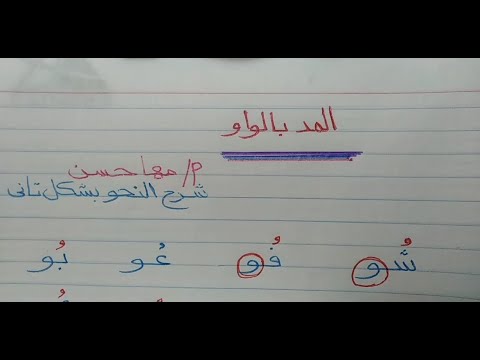 المد بالواو
م/ مها حسن
شرح النحو بشكل تانى
شُو فُو عُو بُو